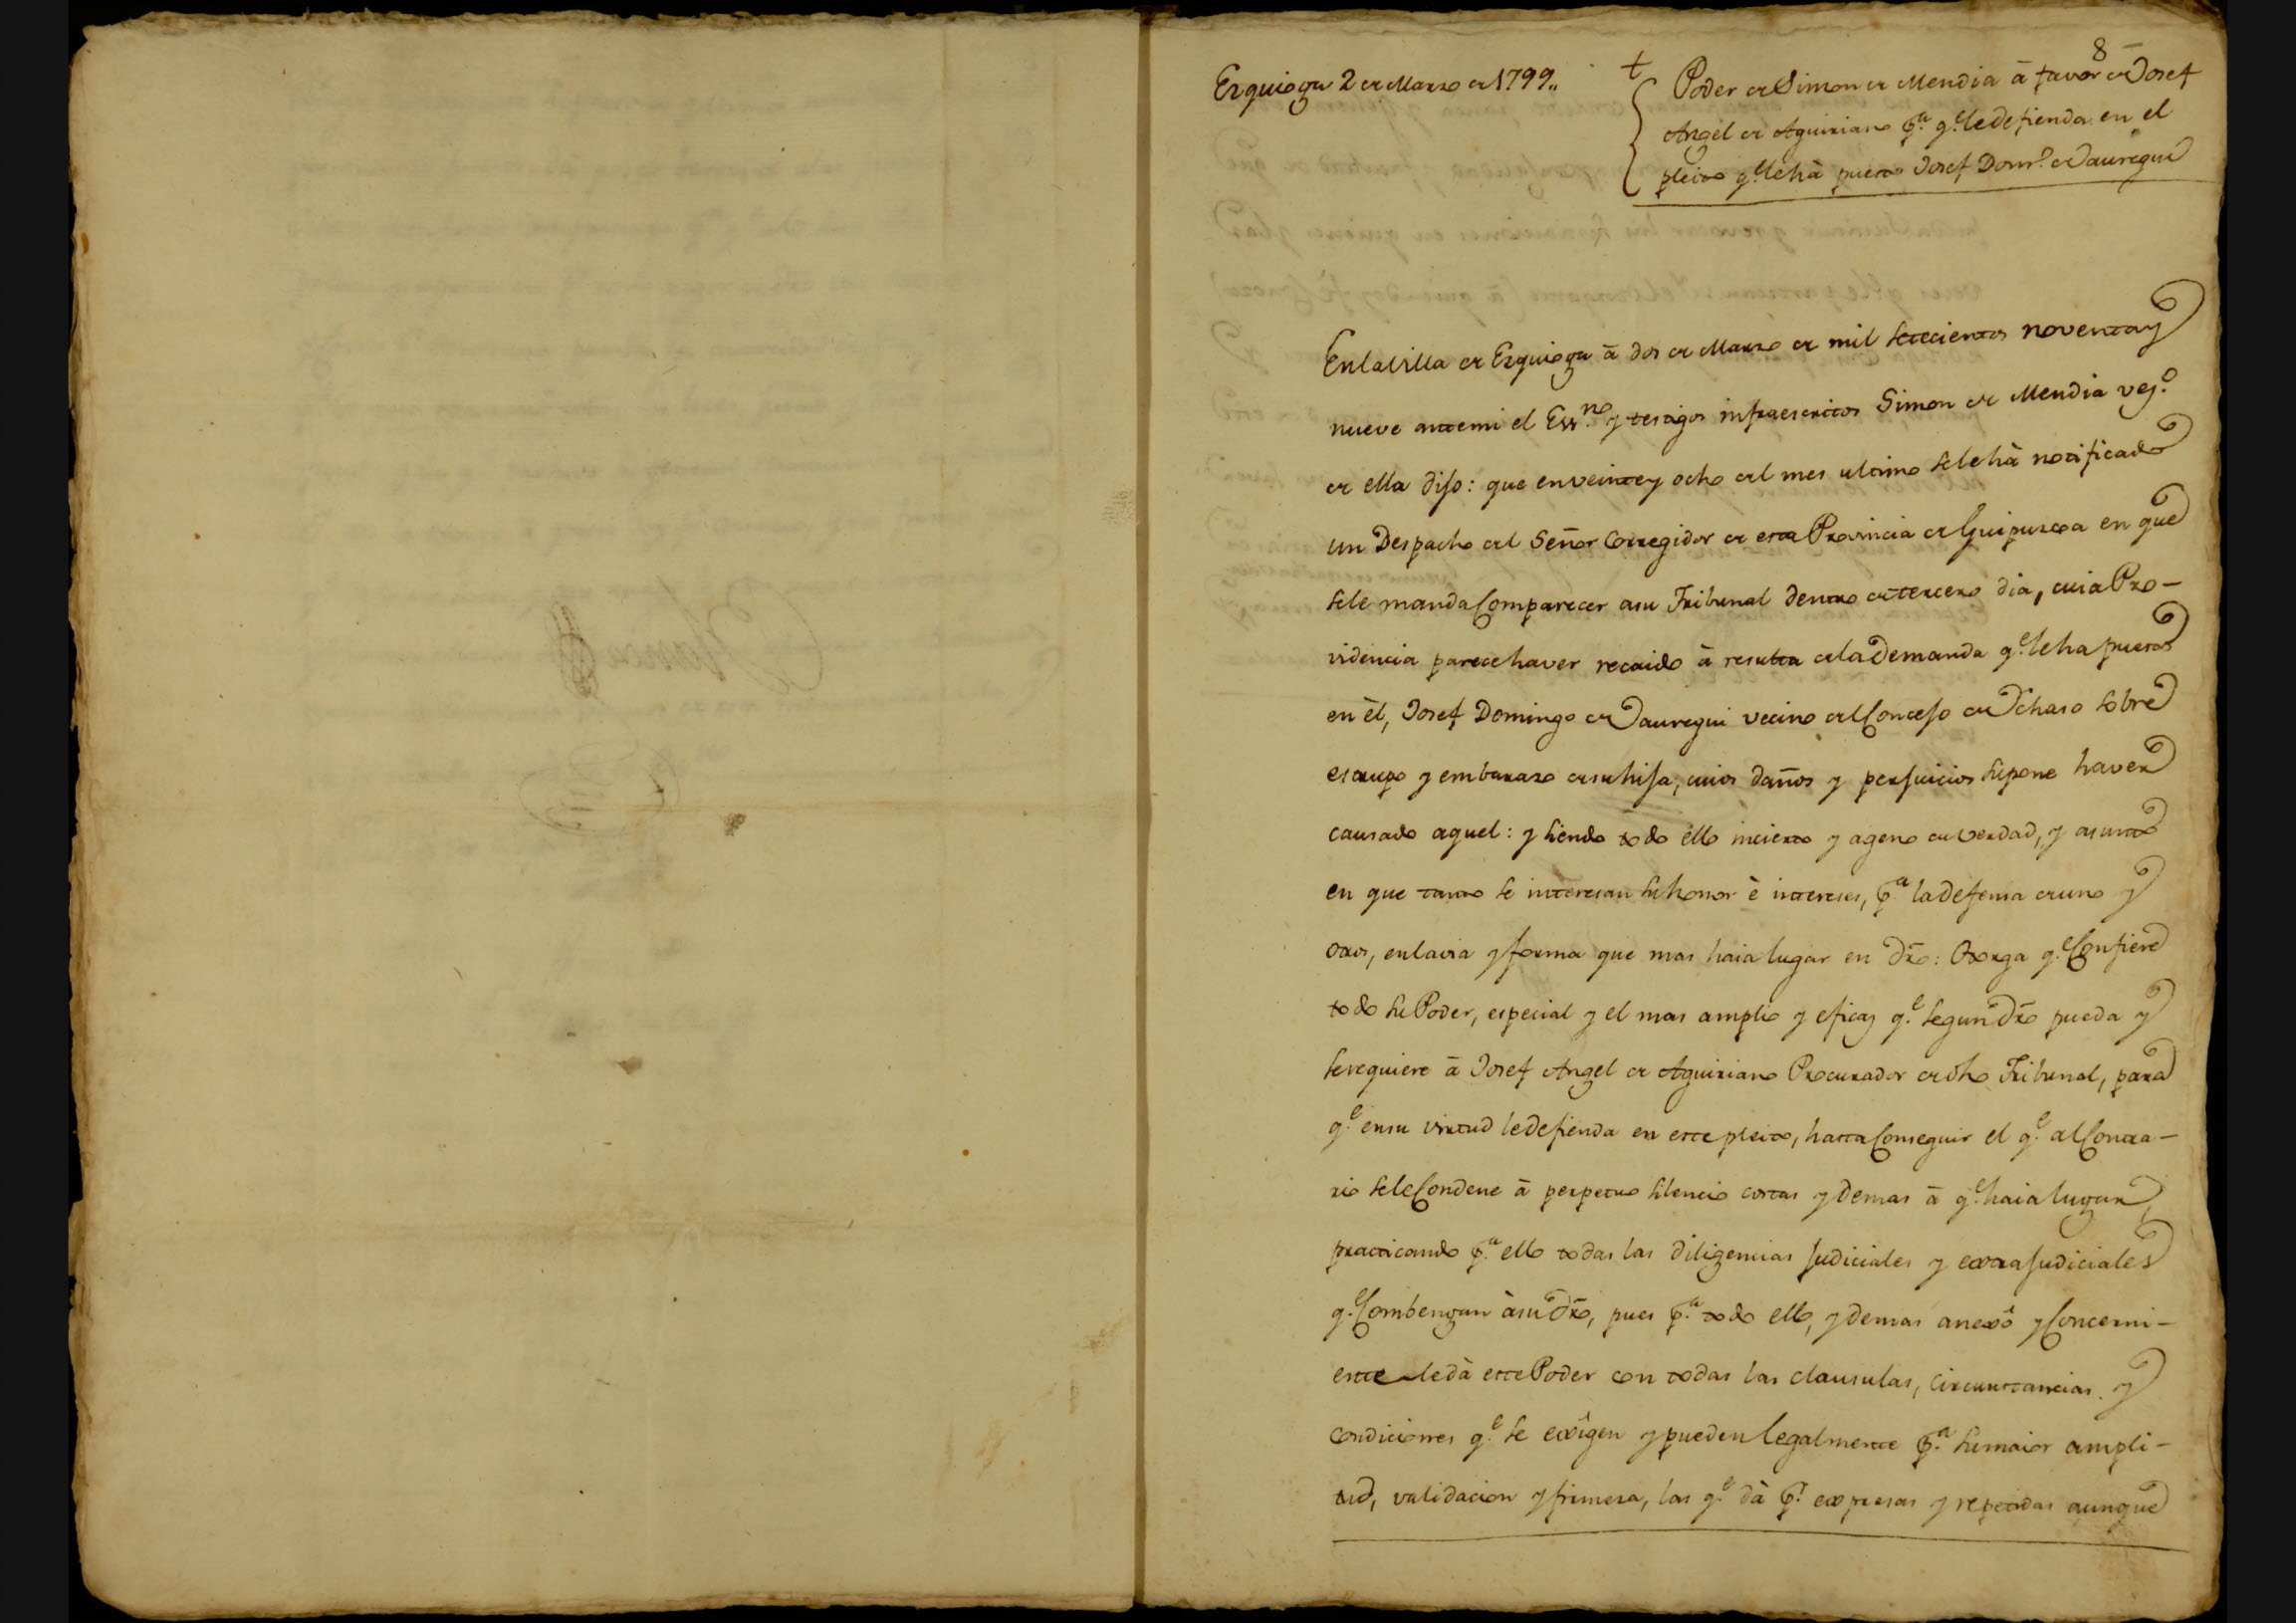 8
Ezquioga 2 de Marzo de 1799,,
Poder de Simon de Mendia â favor de Josef
Angel de Aguiriano p.ª q.e le defienda en el
pleito q.e le hà puesto Josef Dom.o de Jauregui
En la Villa de Ezquioga â dos de Marzo de mil setecientos noventa y
nueve ante mi el Ess.no y testigos infraescritos Simon de Mendia vez.o
de ella dijo: que en veinte y ocho del mes ultimo se le hà notificado
un Despacho del Señor Corregidor de esta Provincia de Guipuzcoa en que
se le manda Comparecer a su Tribunal dentro de tercero dia, cuia Pro-
videncia parece haver recaido à resulta de la Demanda q.e le ha puesto
en èl, Josef Domingo de Jauregui vecino del Concejo de Ichaso sobre
estrupo y embarazo de su hija, cuios daños y perjuicios supone haver
causado aquel: y siendo todo ello incierto y ageno de verdad, y asunto
en que tanto se interesan su honor è intereses, p.ª la defensa de uno y
otros, en la via y forma que mas haia lugar en dro: Otorga q.e Confiere
todo su Poder, especial y el mas amplio y eficaz q.e segun dro pueda y
se requiere â Josef Angel de Aguiriano Procurador de dho Tribunal, para
q.e en su virtud le defienda en este pleito, hasta Conseguir el q.e al Contra-
rio se le Condene â perpetuo silencio costas y demas â q.e haia lugar,
practicando p.ª ello todas las diligencias judiciales y extrajudiciales
q.e Combengan à su dro, pues p.ª todo ello, y demas anexô y Concerni-
ente le dà este Poder con todas las clausulas, circunstancias y
condiciones q.e se exîgen y pueden legalmente p.ª su maior ampli-
tud, validacion y firmeza, las q.e dà p.r expresas y repetidas aunque